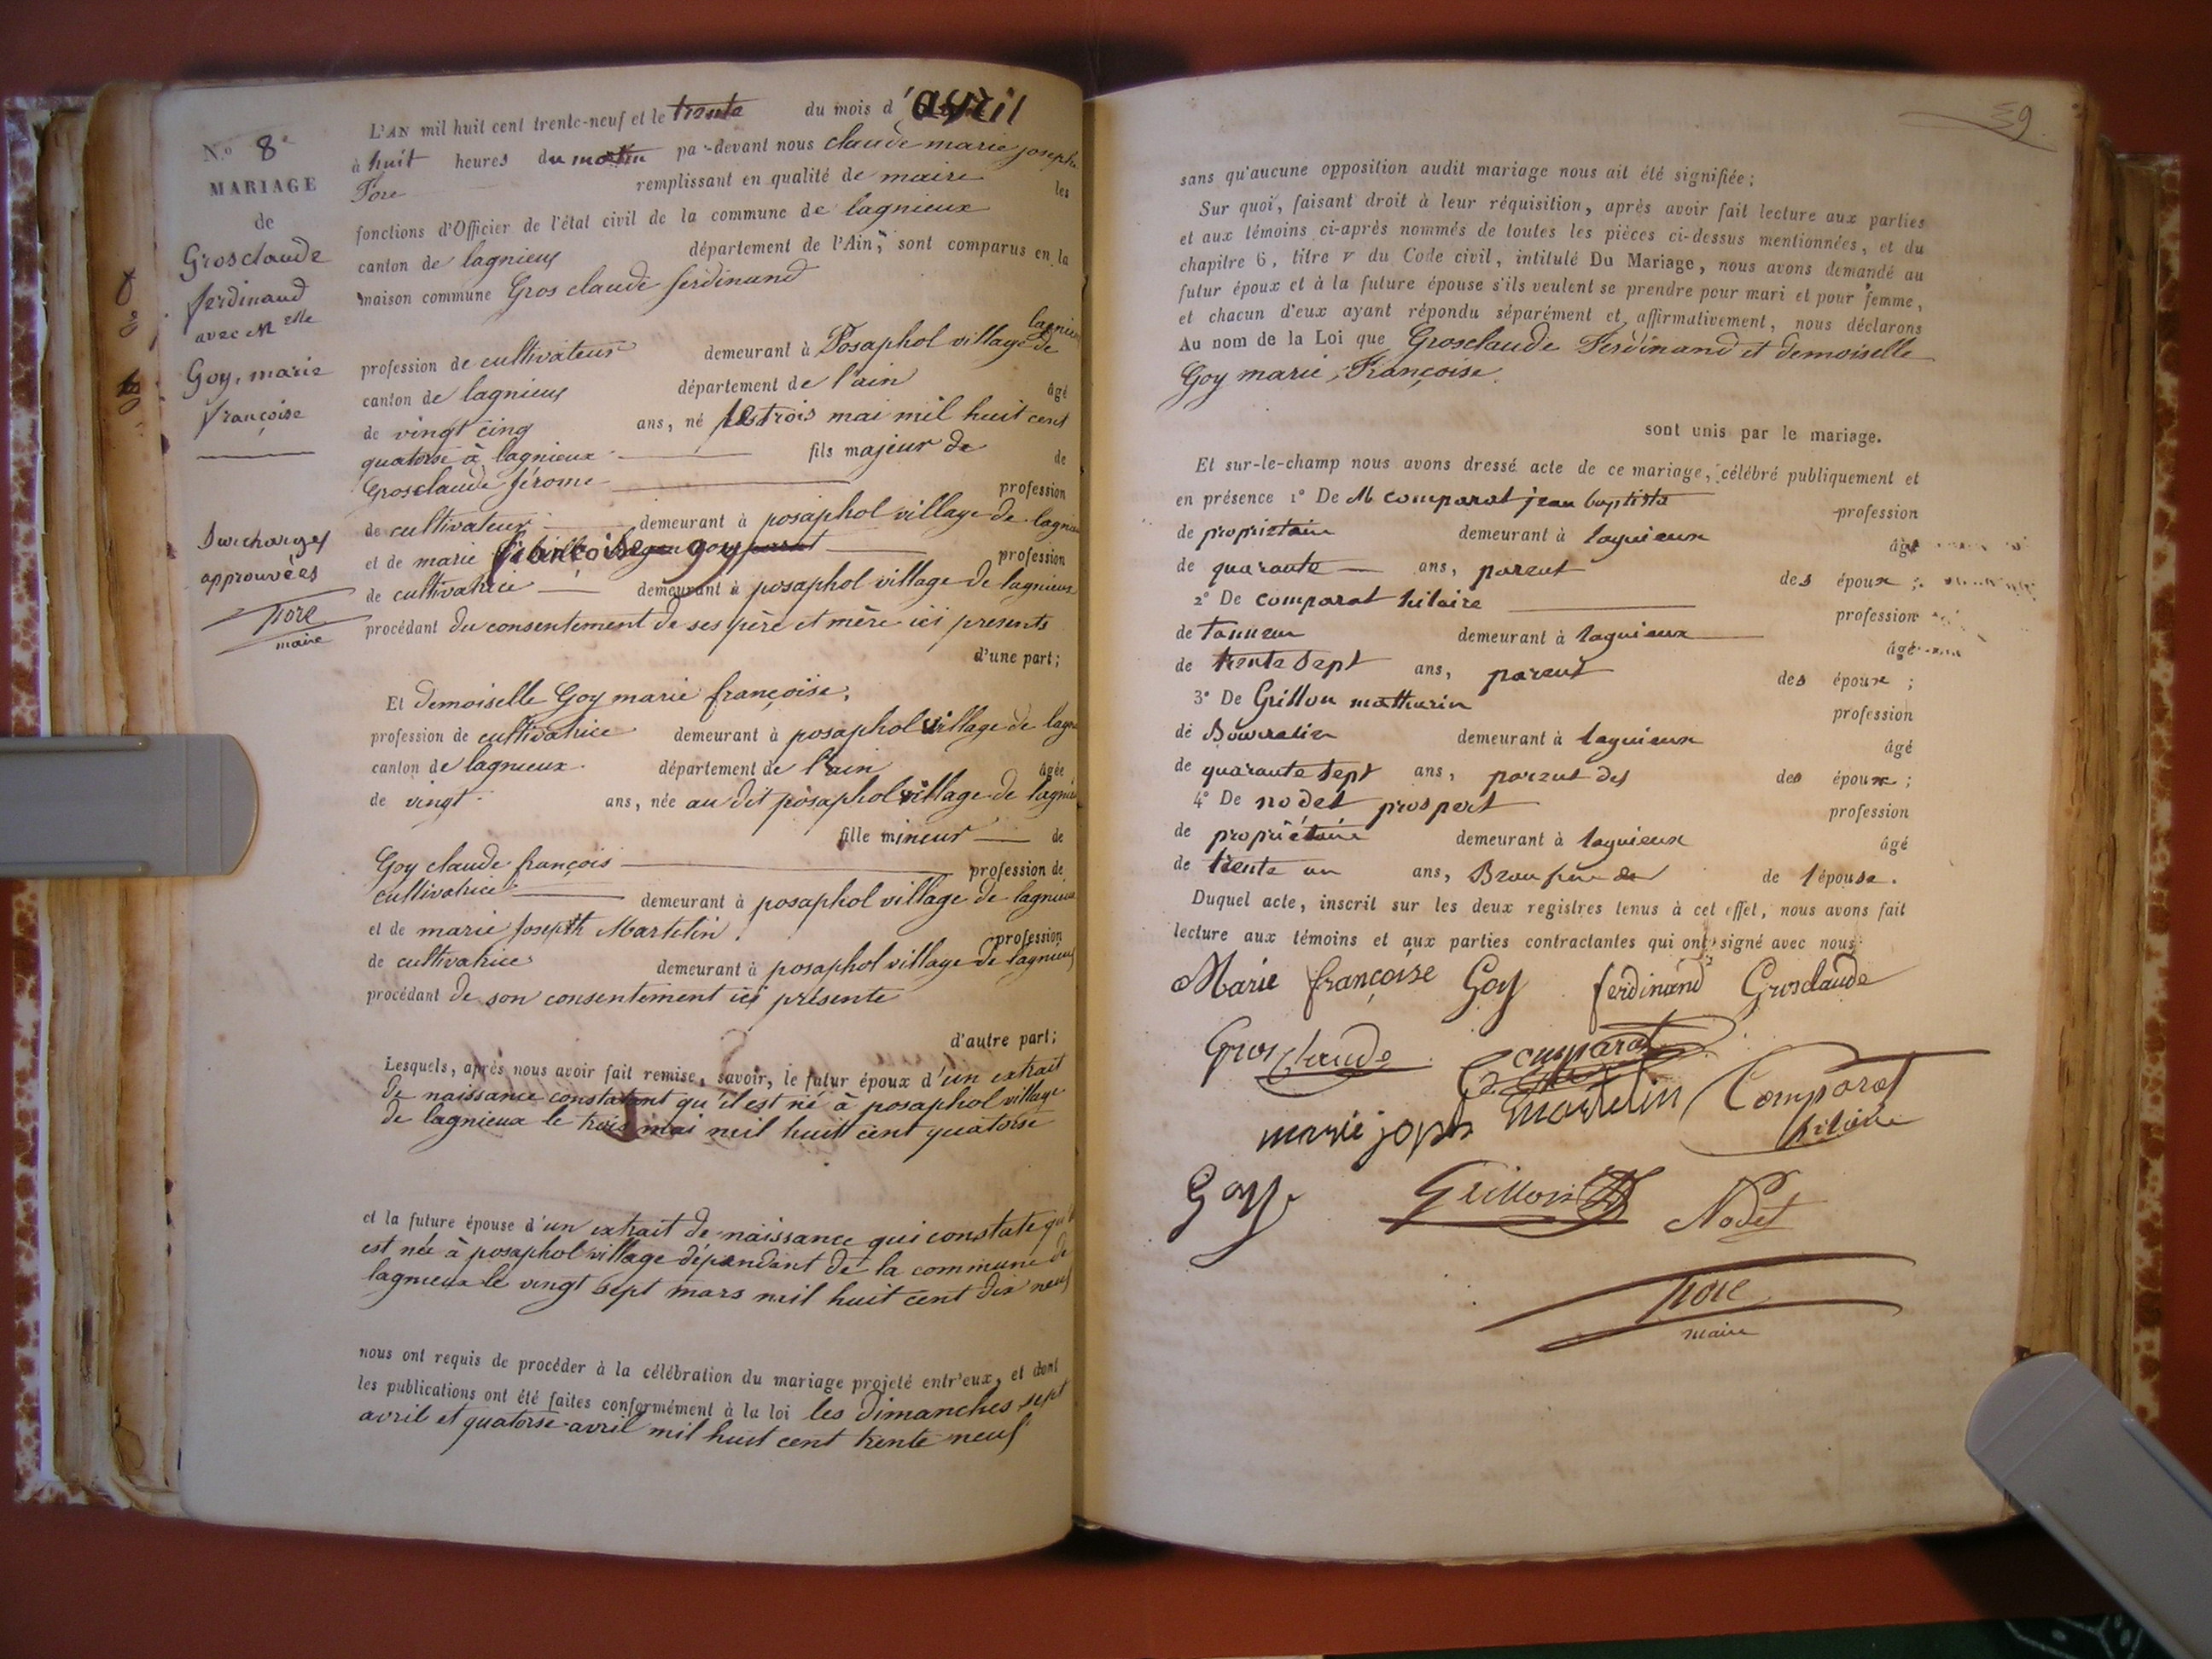 N.o 8e
MARIAGE
de
Grosclaude
ferdinand
avec Melle
Goy, marie
françoise
Surcharges
approuvées
maire
L'AN mil huit cent trente-neuf et le trente du mois d'avril
à huit heures du matin par-devant nous claude marie joseph
remplissant en qualité de maire les
fonctions d'Officier de l'état civil de la commune de lagnieux
canton de lagnieux département de l'Ain, sont comparus en la
maison commune Gros claude ferdinand
profession de cultivateur demeurant à Posaphol village de lagnieu
canton de lagnieux département de l'ain âgé
de vingt cinq ans, né le trois mai mil huit cent
quatorse à lagnieux fils majeur de de
Grosclaude Jérome profession
de cultivateur demeurant à posaphol village de lagnieu
et de marie françoise goy profession
de cultivatrice demeurant à posaphol village de lagnieux
procédant du consentement de ses père et mère ici presents
d'une part;
Et demoiselle Goy marie françoise,
profession de cultivatrice demeurant à posaphol village de lagn
canton de lagnieux département de l'ain âgée
de vingt ans, née au dit posaphol village de lagnie
fille mineur de
Goy claude françois profession de
cultivatrice demeurant à posaphol village de lagnieux
et de marie Joseph Martelin, profession
de cultivatrice demeurant à posaphol village de lagnieux
procédant de son consentement ici présente
d'autre part;
Lesquels, après nous avoir fait remise, savoir, le futur époux d'un extrait
de naissance constatant qu'il est né à posaphol village
de lagnieux le trois mai mil huit cent quatorse
et la future épouse d'un extrait de naissance qui constate qu'
est née à posaphol village dépendant de la commune de
lagnieux le vingt sept mars mil huit cent dix neuf
nous ont requis de procéder à la célébration du mariage projeté entr'eux, et dont
les publications ont été faites conformément à la loi les dimanches sept
avril et quatorse avril mil huit cent trente neuf
sans qu'aucune opposition audit mariage nous ait été signifiée;
Sur quoi, faisant droit à leur réquisition, après avoir fait lecture aux parties
et aux témoins ci-après nommés de toutes les pièces ci-dessus mentionnées, et du
chapitre 6, titre v du Code civil, intitulé Du Mariage, nous avons demandé au
futur époux et à la future épouse s'ils veulent se prendre pour mari et pour femme,
et chacun d'eux ayant répondu séparément et affirmativement, nous déclarons
Au nom de la Loi que Grosclaude Ferdinand et demoiselle
Goy marie, Françoise.
sont unis par le mariage.
Et sur-le-champ nous avons dressé acte de ce mariage, célébré publiquement et
en présence 1° De M comparat jean baptiste profession
de proprietaire demeurant à lagnieux âgé
de quarante ans, parent des époux ;
2° De comparat hilaire profession
de tanneur demeurant à lagnieux âgé
de trente sept ans, parent des époux ;
3° De Grillon mathurin profession
de demeurant à lagnieux âgé
de quarante sept ans, parent des des époux ;
4° De nodet prospert profession
de propriétaire demeurant à lagnieux âgé
de trente un ans, Beau de l'épouse.
Duquel acte, inscrit sur les deux registres tenus à cet effet, nous avons fait
lecture aux témoins et aux parties contractantes qui ont signé avec nous
Marie françoise Goy ferdinand Grosclaude
Grosclaude Comparat
marie joph Martelin Comparat
hilaire
Goy Grillon Nodet
maire